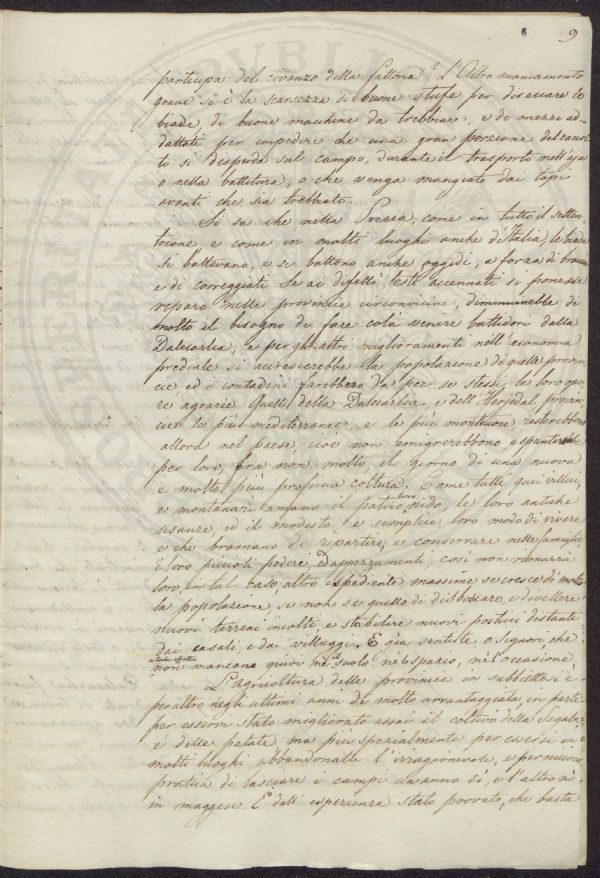 6 9
partecipa del civanzo della fattoria? L'Altro mancamento
grave si è la scarsezza di buone stufe per diseccare le
biade, di buone macchine da trebbiare, e di mezzi ad-
dattati per impedere che una gran porzione del raccol-
to si desperda sul campo, durante il trasporto nell'aja
o nella battitura, o che venga mangiato dai topi
avanti che sia trebbiato.
Si sà che nella Svezia, come in tutto il setten-
trione e come in molti luoghi anche d'Italia, le biade
si battevano, e si battono anche oggidì, a forza di braccia
e di correggiati. Se ai difetti testè accennati si ponesse
riparo nelle provincie circonvicine, diminuirebbe di
molto il bisogno di fare colà venire battidori dalla
Dalecarlia, e per gli altri miglioramenti nell'economia
prediale si accrescerebbe la popolazione di quelle provin-
cie ed i contadini farebbero da per se stessi, le loro ope-
re agrarie. Quelli della Dalecarlia, e dell'Herjdal provin-
cie le più mediterranee, e le più montuose, resterebbero
allora nel paese, cioè non emigrerebbono e spunterebbe
per loro, fra non molto, il giorno di una nuova
e molto più proficua coltura. Come tutti quei villici,
e montanari amano il patrio loro nido, le loro antiche
usanze, ed il modesto, e semplice loro modo di vivere
e che bramano di ripartire, e conservare nelle famiglie
i loro piccioli poderi, ed appezzamenti, così non rimarrà
loro, in tal caso, altro espediente, massime se cresce di molto
la popolazione, se non se quello di disboscare, e divellere
nuovi terreni incolti, e stabilire nuovi posticci distanti
dai casali, e dai villaggi. E già sentiste, o Signori, che
a tale effetto
non mancano quivi nè il suolo, nè lo spazio, nè l'occasione.
L'agricoltura delle provincie in subbietto si è
per altro negli ultimi anni di molto avvantaggiata, in parte
per esservi stato migliorato assai il coltivo della Segala,
e delle patate, ma più spezialmente per essersi in
molti luoghi abbandonata l'irragionevole, e perniciosa
pratica di lasciare i campi un anno sì, e l'altro nò
in maggese. E dall'esperienza stato provato, che basta